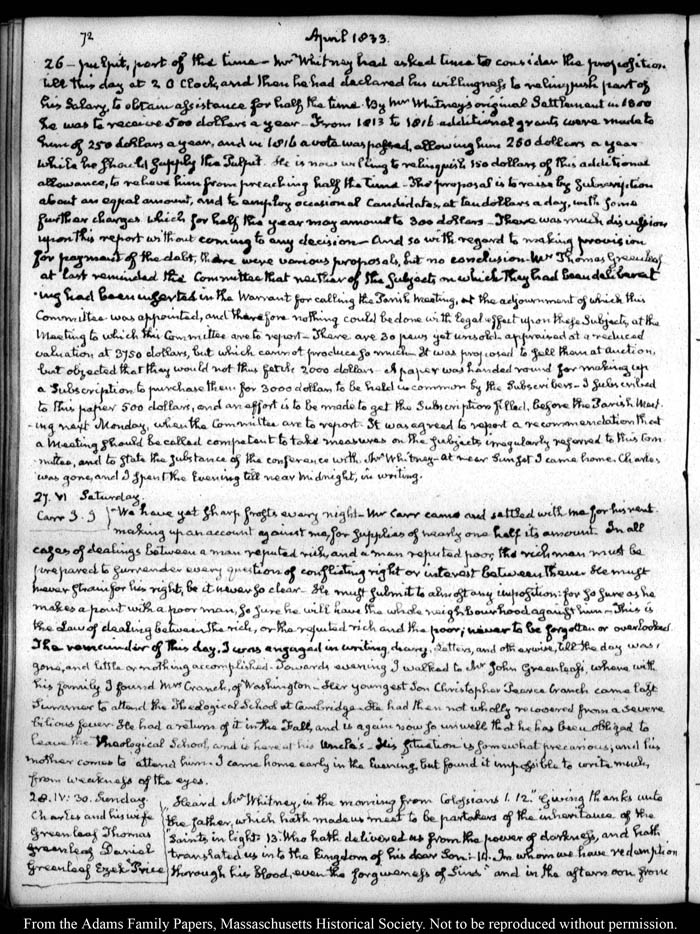 72
April 1833.
26 - pulpit, part of the time - Mr Whitney had asked time to consider the proposition
till this day at 2 O Clock, and then he had declared his willingness to relinquish part of
his Salary, to obtain assistance for half the time. By Mr Whitney's original Settlement in 1800
he was to receive 500 dollars a year - From 1813 to 1816 additional grants were made to
him of 250 dollars a year, and in 1816 a vote was passed, allowing him 250 dollars a year
while he should supply the Pulpit. He is now willing to relinquish 150 dollars of this additional
allowance, to relieve him from preaching half the time - The proposal is to raise by Subscription
about an equal amount, and to employ occasional Candidates, at ten dollars a day, with some
further charges which for half the year may amount to 300 dollars - There was much discussion
upon this report without coming to any decision - And so with regard to making provision
for payment of the debt, there were various proposals, but no conclusion. Mr Thomas Greenleaf
at last reminded the Committee that neither of the subjects on which they had been deliberat-
-ing had been inserted in the Warrant for calling the Parish Meeting, at the adjournment of which this
Committee was appointed, and therefore nothing could be done with legal effect upon these Subjects, at the
Meeting to which this Committee are to report - There are 30 pews yet unsold - appraised at a reduced
valuation at 3750 dollars, but which cannot produce so much - It was proposed to sell them at auction,
but objected that they would not thus fetch 2000 dollars - A paper was handed round for making up
a Subscription to purchase them for 3000 dollars to be held in common by the Subscribers - I subscribed
to this paper 500 dollars, and an effort is to be made to get the Subscription filled, before the Parish Meet-
-ing next Monday, when the Committee are to report. It was agreed to report a recommendation that
a Meeting should be called competent to take measures on the subjects irregularly referred to this Com-
mittee, and to state the substance of the conference with Mr Whitney - At near Sunset I came home. Charles
was gone, and I spent the Evening till near Midnight, in writing.
27. VI Saturday.
Carr J. J
We have yet sharp frosts every night - Mr Carr came and settled with me for his rent
making up an account against me, for supplies of nearly one half its amount. In all
cases of dealings between a man reputed rich, and a man reputed poor, the rich man must be
prepared to surrender every question of conflicting right or interest between them. He must
never strain for his right, be it never so clear - He must submit to almost any imposition: for so sure as he
makes a point with a poor man, so sure he will have the whole neighbourhood against him - This is
the Law of dealing between the rich, or the reputed rich and the poor, never to be forgotten or overlooked.
The remainder of this day, I was engaged in writing, diary, Letters, and otherwise, till the day was
gone, and little or nothing accomplished. Towards evening I walked to Mr John Greenleaf's, where with
his family I found Mrs Cranch, of Washington - Her youngest Son Christopher Pearce Cranch came last
Summer to attend the Theological School at Cambridge - He had then not wholly recovered from a severe
bilious fever - He had a return of it in the Fall, and is again now so unwell that he has been obliged to
leave the Theological School, and is here at his Uncle's - His situation is somewhat precarious, and his
mother comes to attend him. I came home early in the Evening, but found it impossible to write much,
from weakness of the eyes.
28. IV: 30. Sunday.
Charles and his wife
Greenleaf Thomas
Greenleaf Daniel
Greenleaf Ezek' Price
Heard Mr Whitney, in the morning from Colossians 1. 12. "Giving thanks unto
the father, which hath made us meet to be partakers of the inheritance of the
Saints in light: 13. Who hath delivered us from the power of darkness, and hath
translated us into the kingdom of his dear Son: 14. In whom we have redemption
thorough his blood, even the forgiveness of Sins" and in the afternoon from
From the Adams Family Papers, Massachusetts Historical Society. Not to be reproduced without permission.